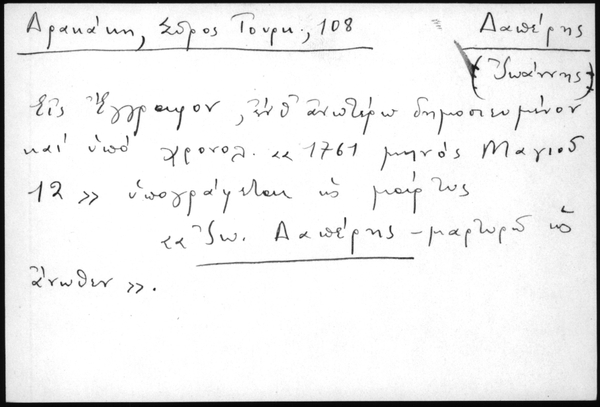 Δρακάκη, Σύρος Τουρκ., 108
Δαπέρης
(Ἰωάννης)
Εἰς Ἔγγραφον, ἔνθ' ἀνωτέρω δημοσιευμένον
καί ὑπό χρονολ. «1761 μηνός Μαγιοῦ
12» ὑπογράφεται ὡς μάρτυς
«Ἰω. Δαπέρης - μαρτυρῶ ὡς
ἄνωθεν».